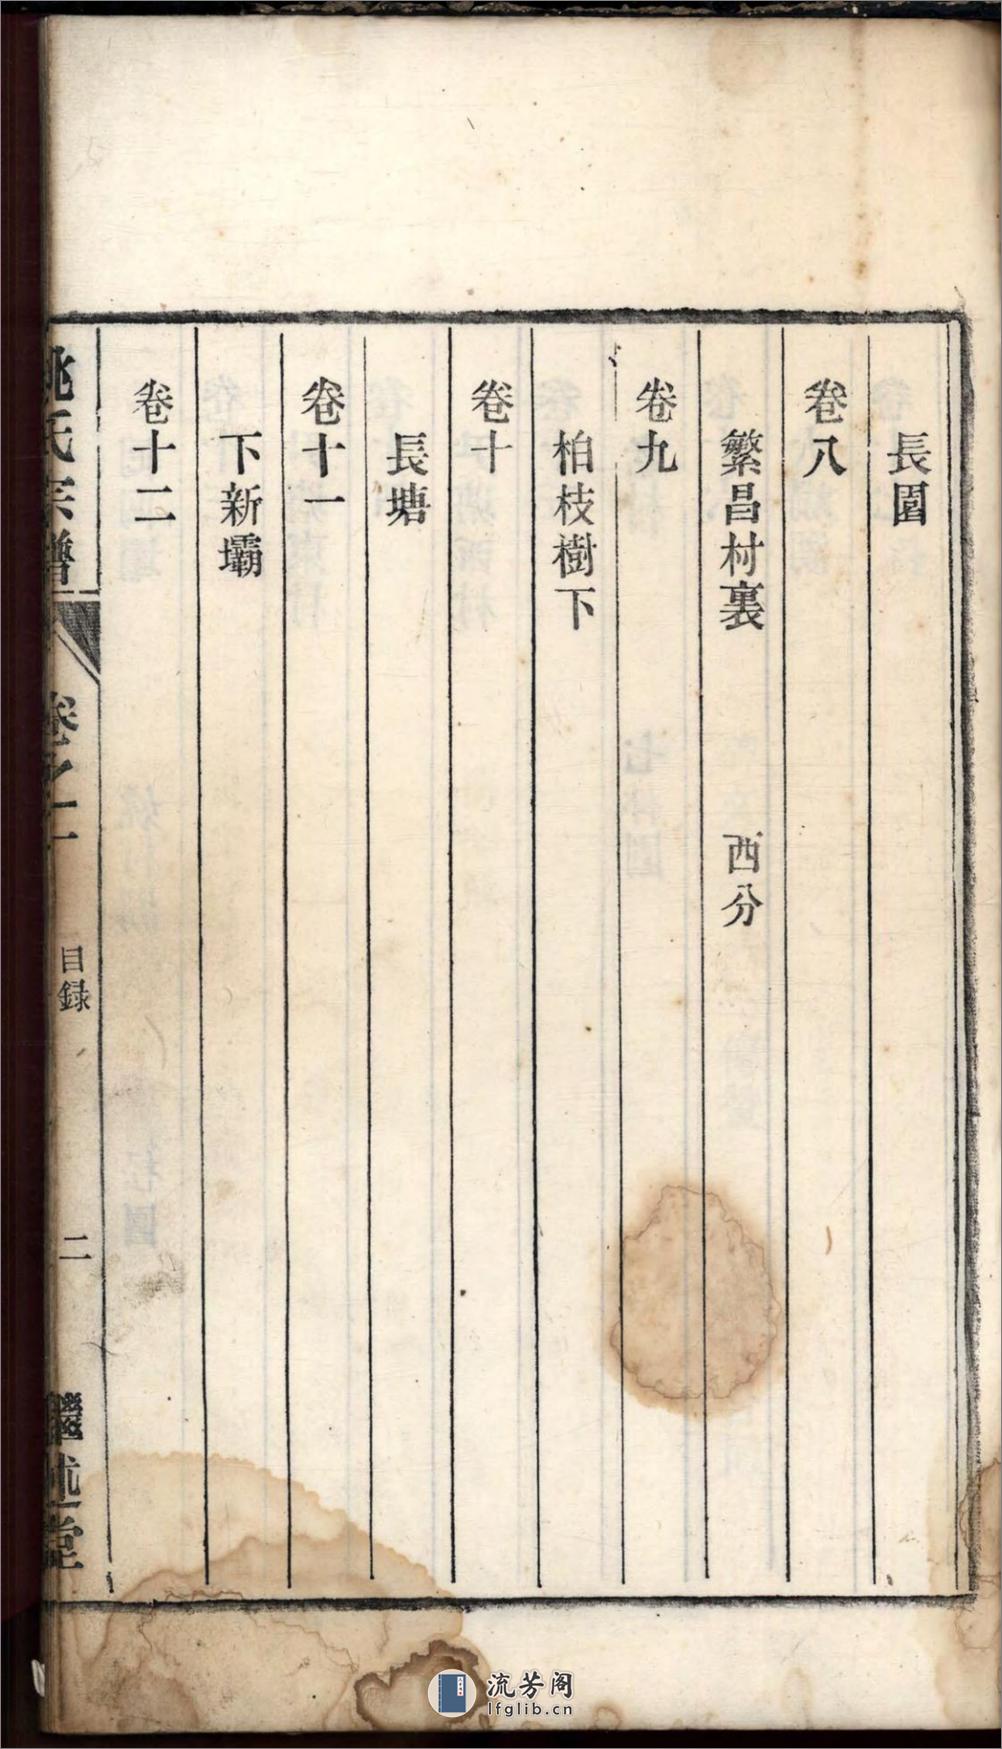 長園
卷八
繁昌村裏 西分
卷九
柏枝樹下
卷十
長塘
卷十一
下新壩
卷十二
姚氏宗譜 卷之一 目録 二 繼述堂
流芳阁
lfglib.cn